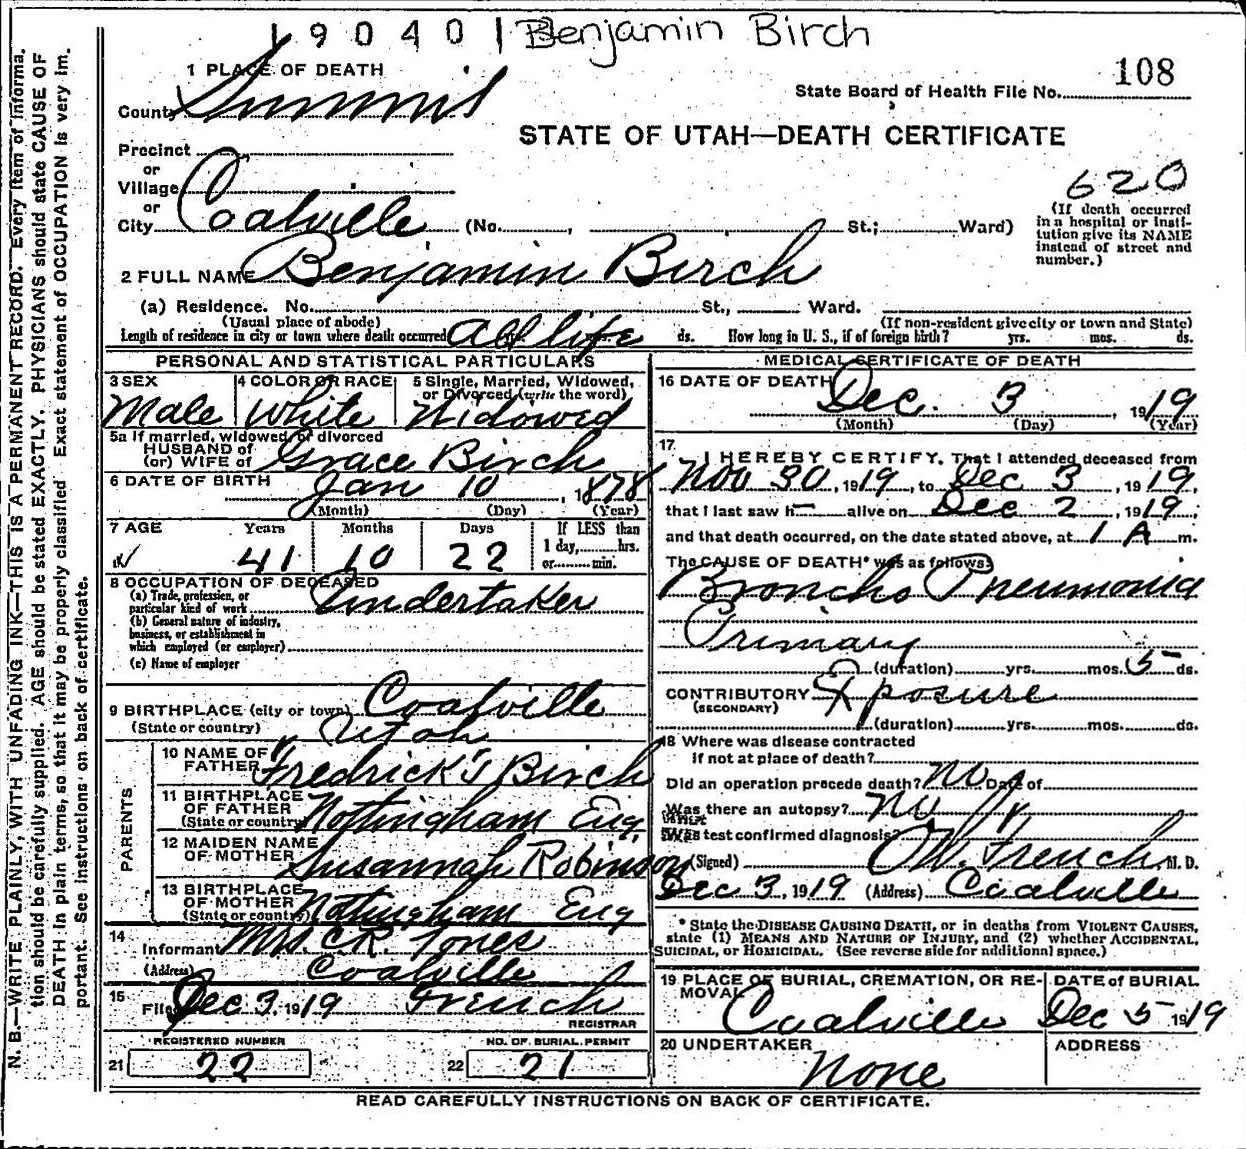 190401 Benjamin Birch
108
1 PLACE OF DEATH
State Board of Health File No.
County Summit
STATE OF UTAH—DEATH CERTIFICATE
Precinct
or
Village
or
City Coalville (No. , St.; Ward)
620
(If death occurred
in a hospital or insti-
tution give its NAME
instead of street and
number.)
2 FULL NAME Benjamin Birch
(a) Residence. No. St., Ward.
(Usual place of abode) (If non-resident give city or town and State)
Length of residence in city or town where death occurred All life ds. How long in U. S., if of foreign birth? yrs. mos. ds.
PERSONAL AND STATISTICAL PARTICULARS
3 SEX Male
4 COLOR OR RACE White
5 Single, Married, Widowed,
or Divorced (write the word)
Widowed
5a If married, widowed, or divorced
HUSBAND of
(or) WIFE of Grace Birch
6 DATE OF BIRTH Jan 10, 1878
(Month) (Day) (Year)
7 AGE Years Months Days If LESS than
1 day, hrs.
or min.
41 10 22
8 OCCUPATION OF DECEASED
(a) Trade, profession, or
particular kind of work Undertaker
(b) General nature of industry,
business, or establishment in
which employed (or employer)
(c) Name of employer
9 BIRTHPLACE (city or town) Coalville
(State or country) Utah
PARENTS
10 NAME OF
FATHER Fredrick's Birch
11 BIRTHPLACE
OF FATHER
(State or country) Nottingham Eng.
12 MAIDEN NAME
OF MOTHER Susannah Robinson
13 BIRTHPLACE
OF MOTHER
(State or country) Nottingham Eng
14
Informant Mrs. C.R. Jones
(Address) Coalville
15
Filed Dec 3, 1919 French
REGISTRAR
REGISTERED NUMBER
21 22
NO. OF BURIAL PERMIT
22 21
MEDICAL CERTIFICATE OF DEATH
16 DATE OF DEATH Dec. 3, 1919
(Month) (Day) (Year)
17
I HEREBY CERTIFY, That I attended deceased from
Nov 30, 1919, to Dec 3, 1919,
that I last saw h— alive on Dec 2, 1919,
and that death occurred, on the date stated above, at 1 A m.
The CAUSE OF DEATH* was as follows:
Broncho Pneumonia
Primary
(duration) yrs. mos. 5 ds.
CONTRIBUTORY Exposure
(SECONDARY)
(duration) yrs. mos. ds.
18 Where was disease contracted
if not at place of death?
Did an operation precede death? no Date of
Was there an autopsy? no
What test confirmed diagnosis?
(Signed) French M. D.
Dec 3, 1919 (Address) Coalville
* State the DISEASE CAUSING DEATH, or in deaths from VIOLENT CAUSES,
state (1) MEANS AND NATURE OF INJURY, and (2) whether ACCIDENTAL,
SUICIDAL, or HOMICIDAL. (See reverse side for additional space.)
19 PLACE OF BURIAL, CREMATION, OR RE-
MOVAL Coalville
DATE of BURIAL
Dec 5 1919
20 UNDERTAKER none
ADDRESS
READ CAREFULLY INSTRUCTIONS ON BACK OF CERTIFICATE.
N. B.—WRITE PLAINLY, WITH UNFADING INK—THIS IS A PERMANENT RECORD. Every item of informa-
tion should be carefully supplied. AGE should be stated EXACTLY. PHYSICIANS should state CAUSE OF
DEATH in plain terms, so that it may be properly classified. Exact statement of OCCUPATION is very im-
portant. See instructions on back of certificate.